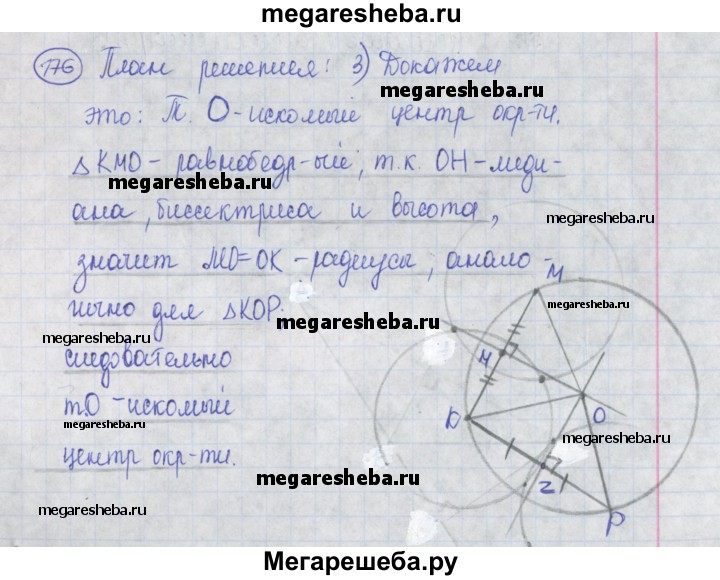 megaresheba.ru
176 План решения: 3) Докажем
megaresheba.ru
это: т. О - искомый центр окр-ти.
△KMO - равнобедр-ый, т.к. OH - меди-
megaresheba.ru
ана, биссектриса и высота,
megaresheba.ru
значит MO=OK - радиусы, анало-
гично для △KOP.
M
megaresheba.ru
megaresheba.ru
megaresheba.ru
следовательно
H
т.О - искомый
K
O
megaresheba.ru
megaresheba.ru
центр окр-ти.
Z
megaresheba.ru
megaresheba.ru
P
Мегарешеба.ру